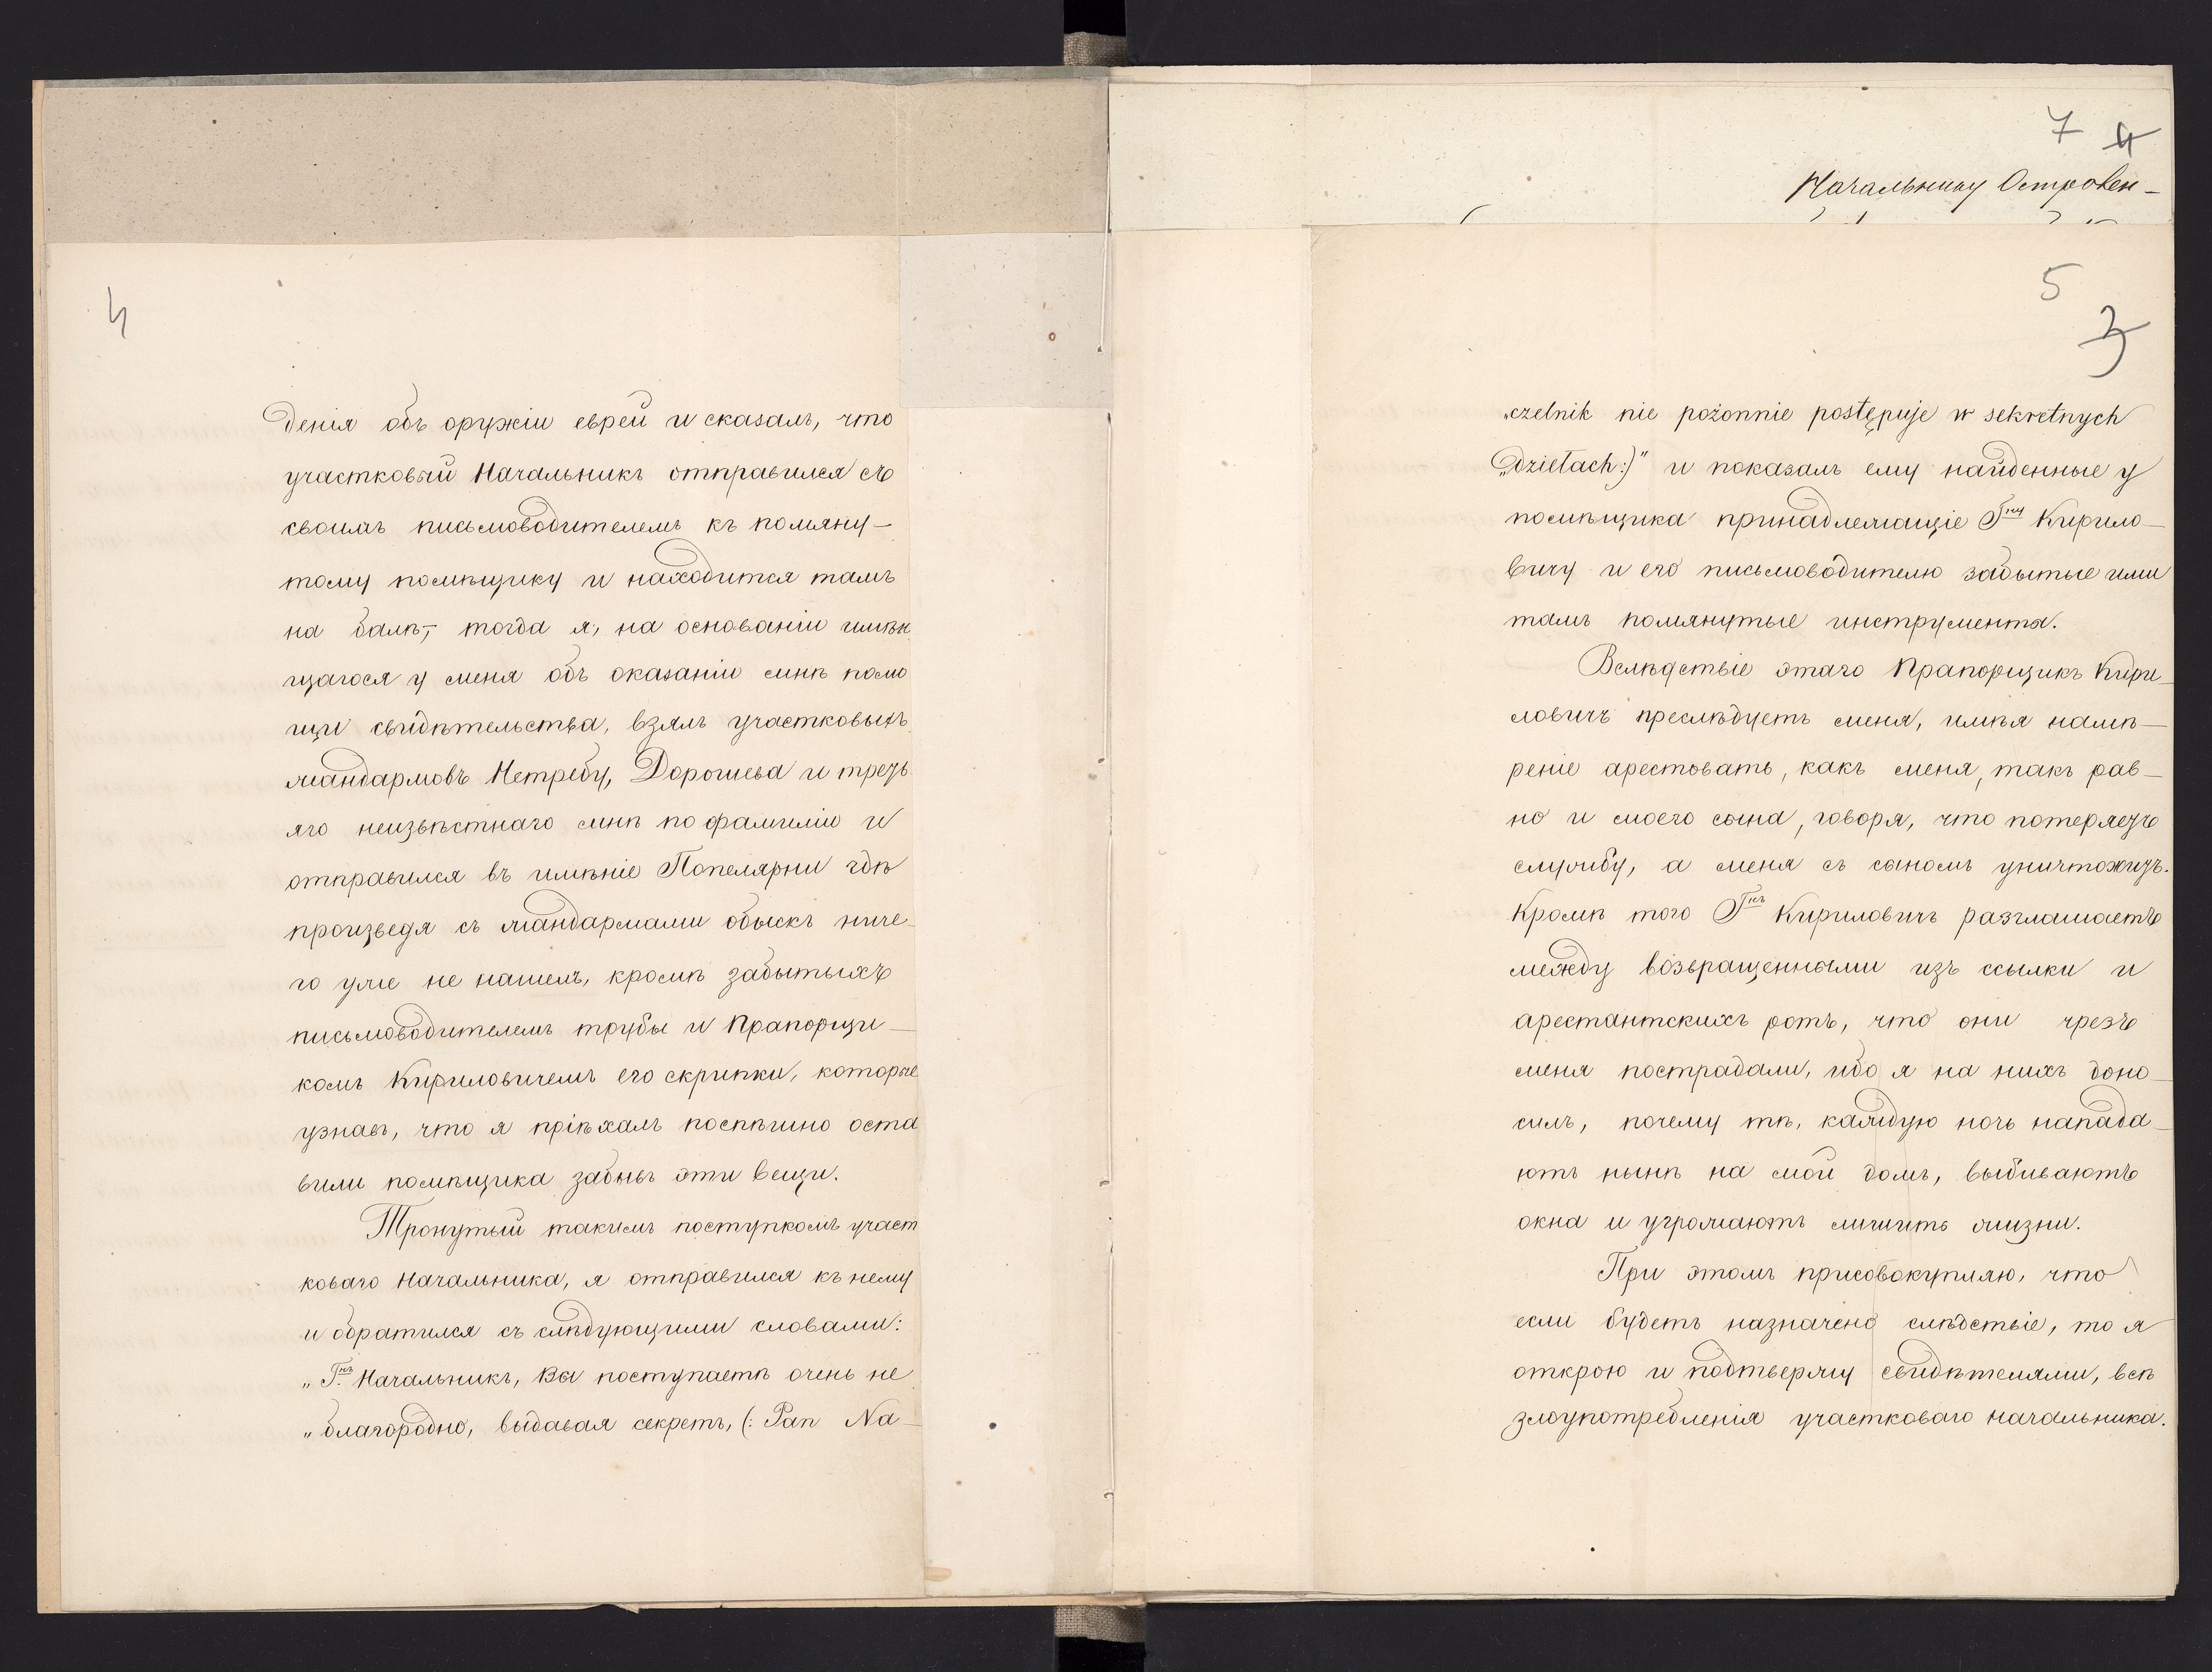 4
денія объ оружіи еврей и сказалъ, что
участковый Начальникъ отправился съ
своимъ письмоводителемъ къ помяну-
тому помѣщику и находится тамъ
на балѣ, тогда я, на основаніи имѣю
щагося у меня объ оказаніи мнѣ помо
щи свидѣтельства, взялъ участковыхъ
жандармовъ Нетребу, Дорошева и треть
яго неизвѣстнаго мнѣ по фамиліи и
отправился въ имѣніе Попелярни гдѣ
произведя съ жандармами обыскъ ниче-
го уже не нашелъ, кромѣ забытыхъ
письмоводителемъ трубы и Прапорщи-
комъ Кириловичемъ его скрипки, которые
узнавъ, что я пріѣхалъ поспѣшно оста
вили помѣщика забывъ эти вещи.
Тронутый такимъ поступкомъ участ
коваго Начальника, я отправился къ нему
и обратился съ слѣдующими словами:
„Г.нъ Начальникъ, Вы поступаетѣ очень не
„благородно, выдавая секретъ, (: Pan Na-
7 4
Начальнику Островен-
5
3
„czelnik nie pożonnie postępuje w sekretnych
„dziełach:)" и показалъ ему найденные у
помѣщика принадлежащіе Гну Кирило-
вичу и его письмоводителю забытые ими
тамъ помянутые инструмента.
Вслѣдствіе этаго Прапорщикъ Кири-
ловичъ преслѣдуетъ меня, имѣя намѣ-
реніе арестовать, какъ меня, такъ рав-
но и моего сына, говоря, что потеряетъ
службу, а меня съ сыномъ уничтожитъ.
Кромѣ того Гнъ Кириловичъ разглашаетъ
между возвращенными изъ ссылки и
арестантскихъ ротъ, что они чрезъ
меня пострадали, ибо я на нихъ доно-
силъ, почему тѣ, каждую ночь напада-
ютъ нынѣ на мой домъ, выбиваютъ
окна и угрожаютъ лишить жизни.
При этомъ присовокупляю, что
если будетъ назначено слѣдствіе, то я
открою и подтвержу свидѣтелями, всѣ
злоупотребленія участковаго начальника.